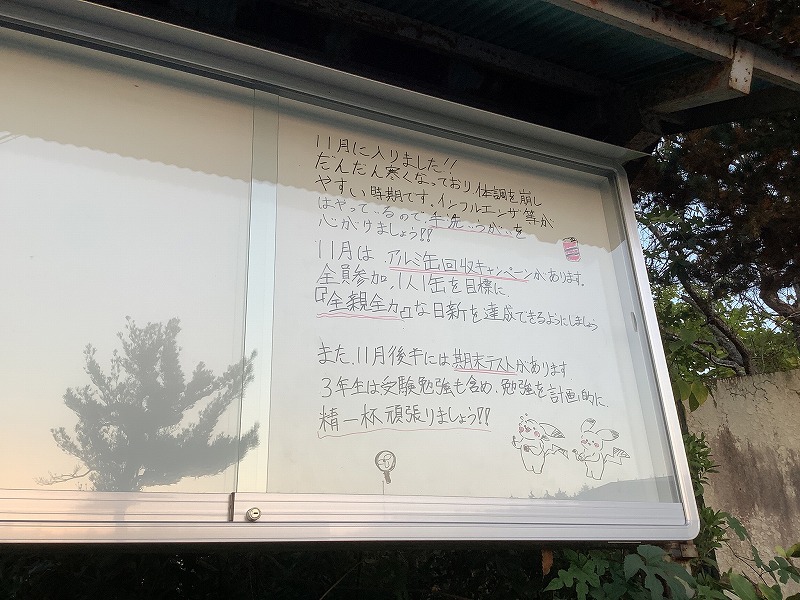 11月に入りました!!
だんだん寒くなっており体調を崩し
やすい時期です。インフルエンザ等が
はやっているので、手洗い、うがいを
心がけましょう!!
11月は、アルミ缶回収キャンペーンがあります。
全員参加、1人1缶を目標に、
『全親全力』な日新を達成できるようにしましょう
また、11月後半には、期末テストがあります
3年生は受験勉強も含め、勉強を計画的に、
精一杯頑張りましょう!!